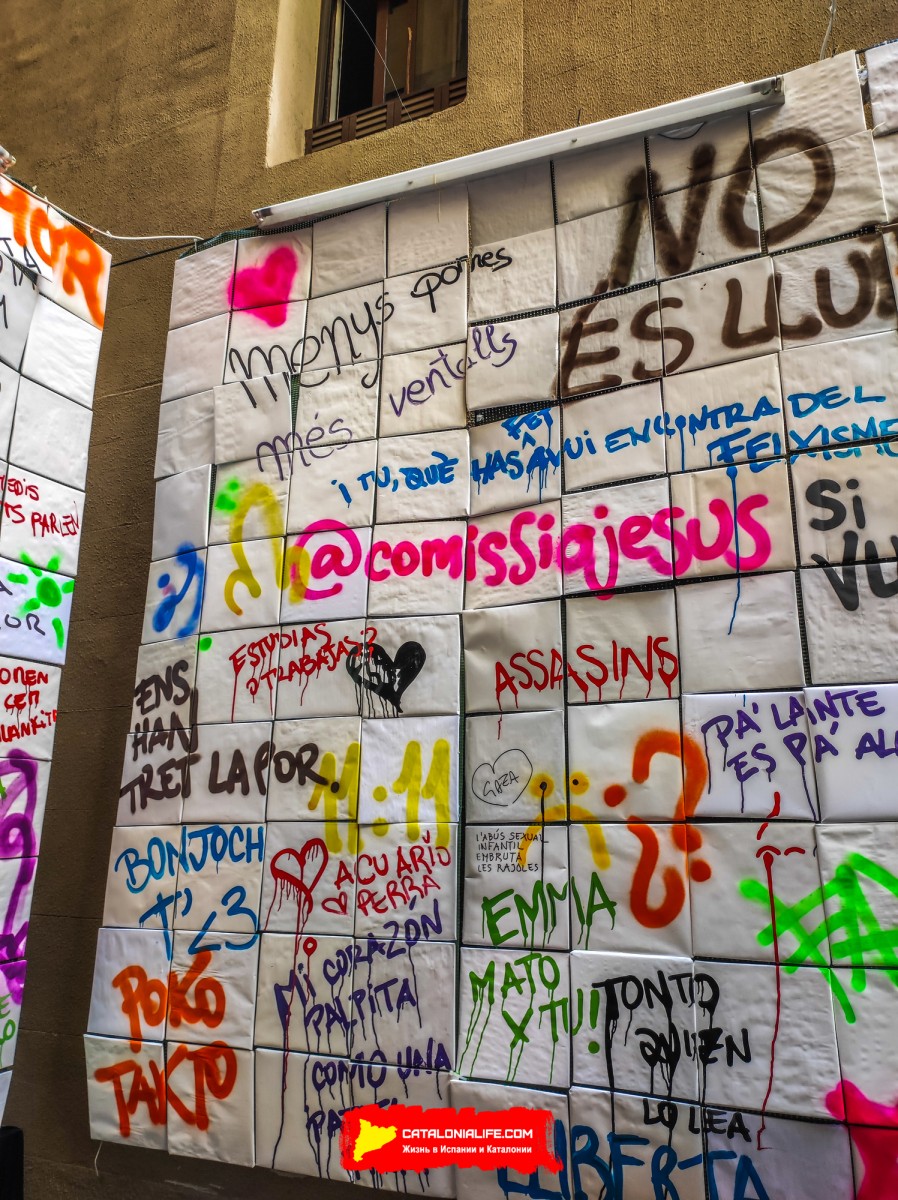 NO
ÉS LLU
menys porres
més ventalls
¡ TU, QUÈ HAS FET AVUI EN CONTRA DEL
FEIXISME
@comissiajesus
SI
VU
ESTUDIAS
O TRABAJAS?
ASSASINS
ENS
HAN
TRET LA POR
11:11
GAZA
PA' LANTE
ES PA' ALL
L'ABÚS SEXUAL
INFANTIL
EMBRUTA
LES RAJOLES
BONJOCH
T' <3
ACUARIO
PERRA
EMMA
MI CORAZÓN
PALPITA
COMO UNA
POKO
TAKTO
MATO
X TU!
TONTO
QUIEN
LO LEA
LLIBERTA
PARLEN
CATALONIALIFE.COM
Жизнь в Испании и Каталонии